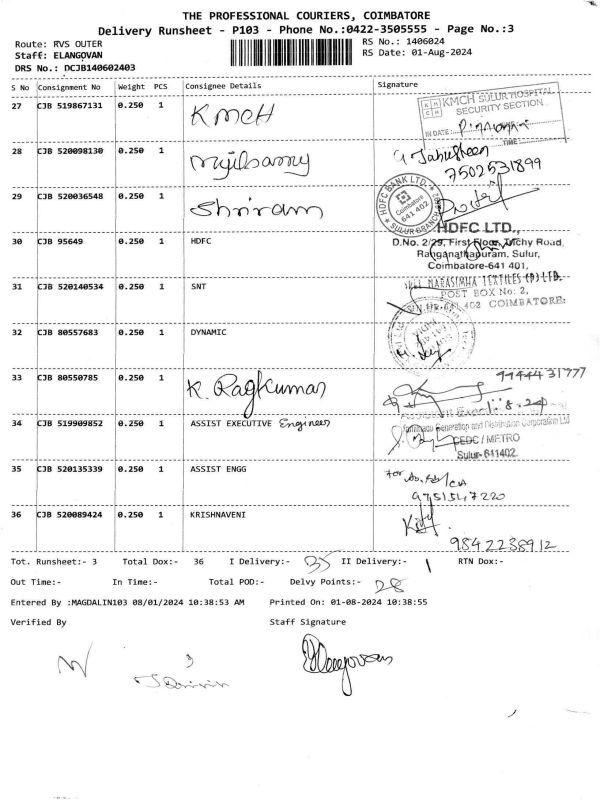 THE PROFESSIONAL COURIERS, COIMBATORE
Delivery Runsheet - P103 - Phone No.:0422-3505555 - Page No.:3
Route: RVS OUTER
RS No.: 1406024
Staff: ELANGOVAN
RS Date: 01-Aug-2024
DRS No.: DCJB140602403
S No Consignment No Weight PCS Consignee Details Signature
27 CJB 519867131 0.250 1 KMCH
KMCH SULUR HOSPITAL
SECURITY SECTION
IN DATE
TIME
28 CJB 520098130 0.250 1
7502531899
29 CJB 520036548 0.250 1 Shriram
HDFC BANK LTD.
Coimbatore
641 402
SULUR BRANCH
30 CJB 95649 0.250 1 HDFC
HDFC LTD.,
D.No. 2/29, First Floor, Trichy Road,
Ranganathapuram, Sulur,
Coimbatore-641 401,
31 CJB 520140534 0.250 1 SNT
NARASIMHA TEXTILES (P) LTD.
POST BOX No: 2,
COIMBATORE:
32 CJB 80557683 0.250 1 DYNAMIC
33 CJB 80550785 0.250 1 K. Ragkumar
34 CJB 519909852 0.250 1 ASSIST EXECUTIVE Engineer
Generation and Distribution Corporation Ltd
CEDC / METRO
Sulur- 641402.
35 CJB 520135339 0.250 1 ASSIST ENGG
For
9751547220
36 CJB 520089424 0.250 1 KRISHNAVENI
9842238912
Tot. Runsheet:- 3 Total Dox:- 36 I Delivery:- 35 II Delivery:- 1 RTN Dox:-
Out Time:- In Time:- Total POD:- Delvy Points:- 28
Entered By :MAGDALIN103 08/01/2024 10:38:53 AM Printed On: 01-08-2024 10:38:55
Verified By Staff Signature